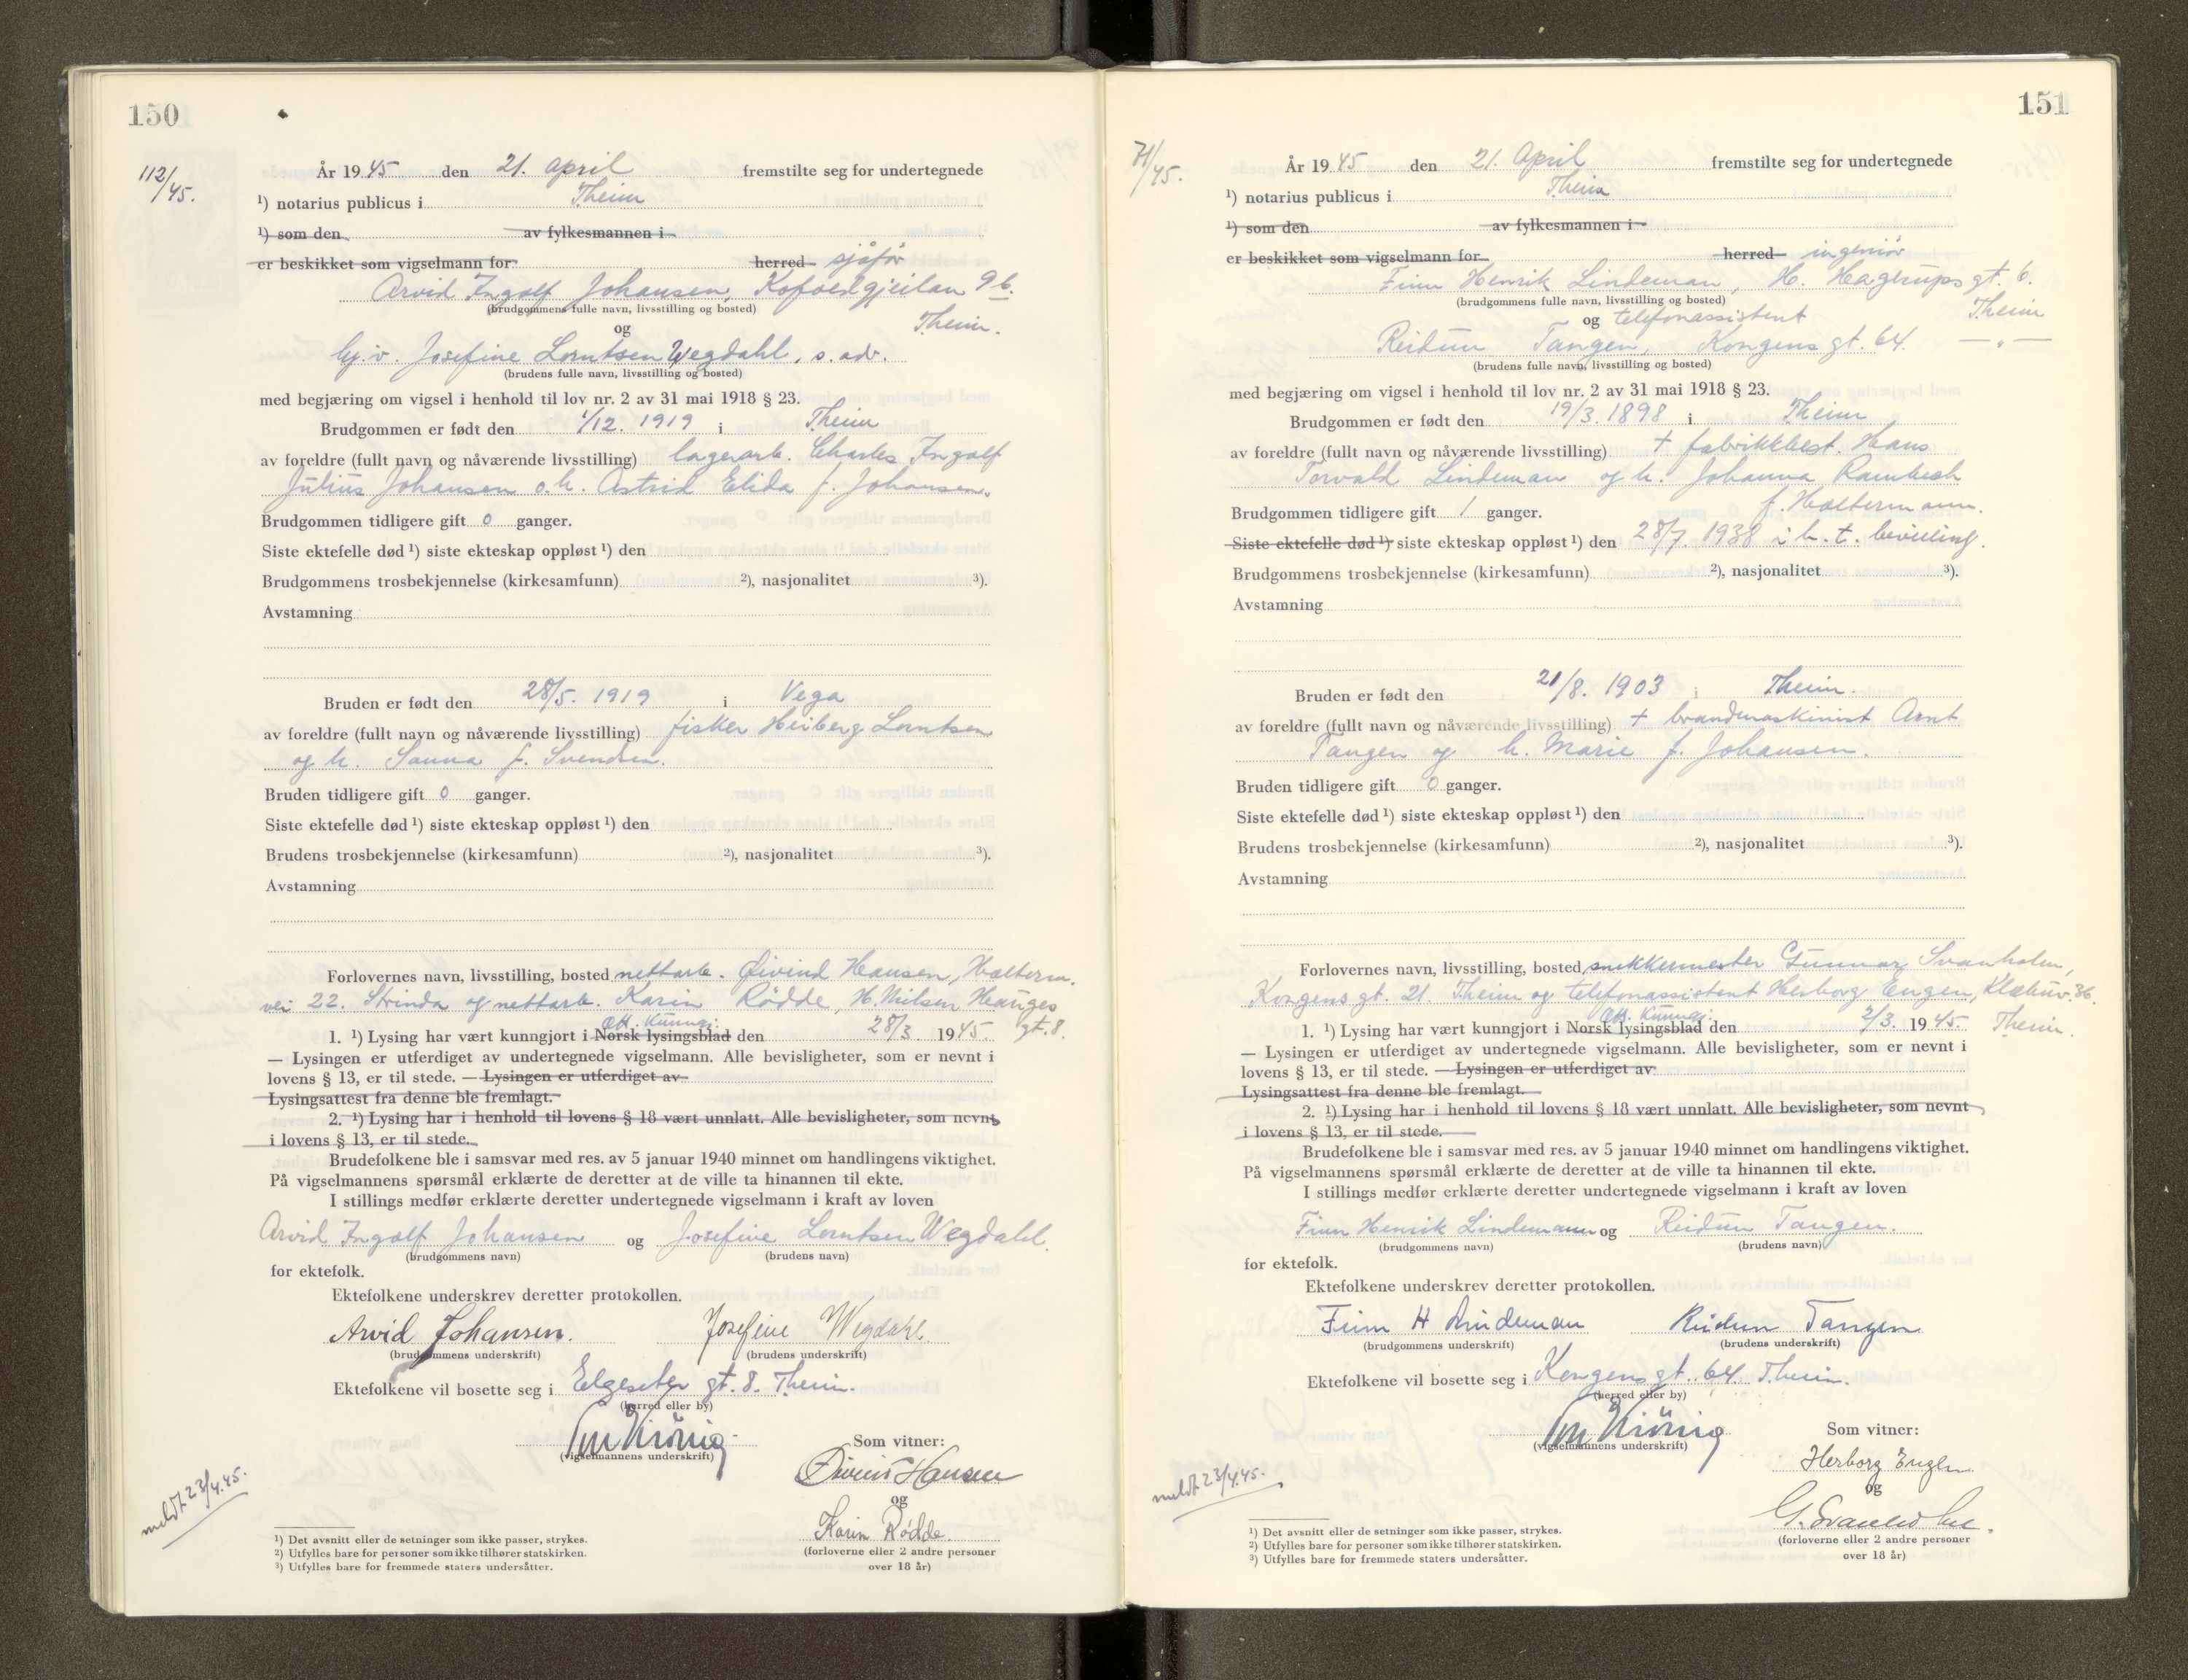 150
112/45.
År 1945 den 21. april fremstilte seg for undertegnede
¹) notarius publicus i Theim
¹) som den av fylkesmannen i
er beskikket som vigselmann for herred sjåfør
Arvid Ingolf Johansen, Kofoedgjeilan 9b.
(brudgommens fulle navn, livsstilling og bosted)
Theim.
og
Josefine Lorntsen Wegdahl, s. adr.
(brudens fulle navn, livsstilling og bosted)
med begjæring om vigsel i henhold til lov nr. 2 av 31 mai 1918 § 23.
Brudgommen er født den 1/12. 1919 i Theim
av foreldre (fullt navn og nåværende livsstilling) lagerarb. Charles Ingolf
Julius Johansen o.h. Astrid Elida f. Johansen.
Brudgommen tidligere gift 0 ganger.
Siste ektefelle død ¹) siste ekteskap oppløst ¹) den
Brudgommens trosbekjennelse (kirkesamfunn) ²), nasjonalitet ³).
Avstamning
Bruden er født den 28/5. 1919 i Vega
av foreldre (fullt navn og nåværende livsstilling) fisker Heiberg Lorntsen
og h. Sanna f. Svendsen.
Bruden tidligere gift 0 ganger.
Siste ektefelle død ¹) siste ekteskap oppløst ¹) den
Brudens trosbekjennelse (kirkesamfunn) ²), nasjonalitet ³).
Avstamning
Forlovernes navn, livsstilling, bosted nettarb. Øivind Hansen, Halterm.
vei 22. Strinda og nettarb. Karin Rödde, H. Nilsen Hauges
gt. 8.
Off. Kunngj.
1. ¹) Lysing har vært kunngjort i Norsk lysingsblad den 28/3. 1945.
— Lysingen er utferdiget av undertegnede vigselmann. Alle bevisligheter, som er nevnt i
lovens § 13, er til stede. — Lysingen er utferdiget av
Lysingsattest fra denne ble fremlagt.
2. ¹) Lysing har i henhold til lovens § 18 vært unnlatt. Alle bevisligheter, som nevnt
i lovens § 13, er til stede.
Brudefolkene ble i samsvar med res. av 5 januar 1940 minnet om handlingens viktighet.
På vigselmannens spørsmål erklærte de deretter at de ville ta hinannen til ekte.
I stillings medfør erklærte deretter undertegnede vigselmann i kraft av loven
Arvid Ingolf Johansen og Josefine Lorntsen Wegdahl.
(brudgommens navn) (brudens navn)
for ektefolk.
Ektefolkene underskrev deretter protokollen.
Arvid Johansen. Josefine Wegdahl.
(brudgommens underskrift) (brudens underskrift)
Ektefolkene vil bosette seg i Elgeseter gt. 8. Theim.
(herred eller by)
(vigselmannens underskrift)
Som vitner:
Øivind Hansen
og
Karin Rødde.
(forloverne eller 2 andre personer
over 18 år)
meldt 23/4.45.
¹) Det avsnitt eller de setninger som ikke passer, strykes.
²) Utfylles bare for personer som ikke tilhører statskirken.
³) Utfylles bare for fremmede staters undersåtter.
151
71/45.
År 1945 den 21. April fremstilte seg for undertegnede
¹) notarius publicus i Theim
¹) som den av fylkesmannen i
er beskikket som vigselmann for herred ingeniør
Finn Henrik Lindeman, H. Hagerups gt. 6.
(brudgommens fulle navn, livsstilling og bosted)
Theim
og telefonassistent
Reidun Tangen, Kongens gt. 64. — " —
(brudens fulle navn, livsstilling og bosted)
med begjæring om vigsel i henhold til lov nr. 2 av 31 mai 1918 § 23.
Brudgommen er født den 19/3. 1898 i Theim
av foreldre (fullt navn og nåværende livsstilling) + fabrikkbest. Hans
Torvald Lindeman og h. Johanna
f. Haltermann.
Brudgommen tidligere gift 1 ganger.
Siste ektefelle død ¹) siste ekteskap oppløst ¹) den 28/7. 1938 i h. t. bevilling.
Brudgommens trosbekjennelse (kirkesamfunn) ²), nasjonalitet ³).
Avstamning
Bruden er født den 21/8. 1903 i Theim.
av foreldre (fullt navn og nåværende livsstilling) + brandmaskinist Arnt
Tangen og h. Marie f. Johansen.
Bruden tidligere gift 0 ganger.
Siste ektefelle død ¹) siste ekteskap oppløst ¹) den
Brudens trosbekjennelse (kirkesamfunn) ²), nasjonalitet ³).
Avstamning
Forlovernes navn, livsstilling, bosted snekkermester Gunnar Svanholm,
Kongens gt. 21. Theim og telefonassistent Herborg Engen, Klæbuv. 36.
Theim.
Off. Kunngj.
1. ¹) Lysing har vært kunngjort i Norsk lysingsblad den 2/3. 1945.
— Lysingen er utferdiget av undertegnede vigselmann. Alle bevisligheter, som er nevnt i
lovens § 13, er til stede. — Lysingen er utferdiget av
Lysingsattest fra denne ble fremlagt.
2. ¹) Lysing har i henhold til lovens § 18 vært unnlatt. Alle bevisligheter, som nevnt
i lovens § 13, er til stede.
Brudefolkene ble i samsvar med res. av 5 januar 1940 minnet om handlingens viktighet.
På vigselmannens spørsmål erklærte de deretter at de ville ta hinannen til ekte.
I stillings medfør erklærte deretter undertegnede vigselmann i kraft av loven
Finn Henrik Lindemann og Reidun Tangen.
(brudgommens navn) (brudens navn)
for ektefolk.
Ektefolkene underskrev deretter protokollen.
Finn H Lindeman Reidun Tangen
(brudgommens underskrift) (brudens underskrift)
Ektefolkene vil bosette seg i Kongens gt. 64. Theim.
(herred eller by)
(vigselmannens underskrift)
Som vitner:
Herborg Engen
og
G. Svanholm.
(forloverne eller 2 andre personer
over 18 år)
meldt 23/4.45.
¹) Det avsnitt eller de setninger som ikke passer, strykes.
²) Utfylles bare for personer som ikke tilhører statskirken.
³) Utfylles bare for fremmede staters undersåtter.